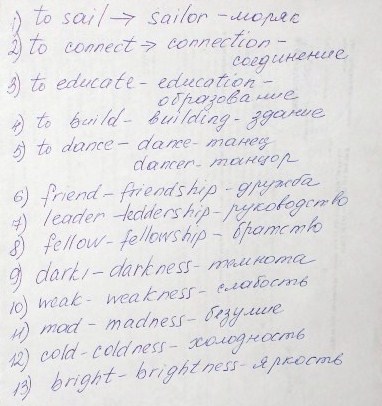 1) to sail → sailor - моряк
2) to connect → connection -
соединение
3) to educate - education -
образование
4) to build - building - здание
5) to dance - dance - танец
dancer - танцор
6) friend - friendship - дружба
7) leader - leddership - руководство
8) fellow - fellowship - братство
9) darkı - darkness - темнота
10) weak - weakness - слабость
11) mad - madness - безумие
12) cold - coldness - холодность
13) bright - brightness - яркость